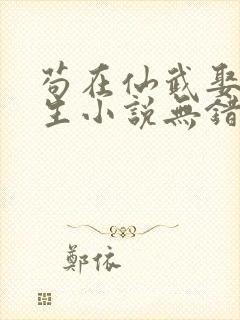 苟在仙武娶
生小説無錯
鄭依